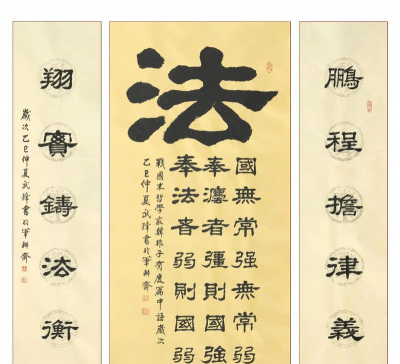 鵬程擔律義
法
國無常强無常弱
奉灋者彊則國強
奉法者弱則國弱
戰國末哲學家韓非子有度篇中語歲次
乙巳仲夏武鋒書於筆耕齋
翔實鑄法衡
歲次乙巳仲夏武鋒書於筆耕齋